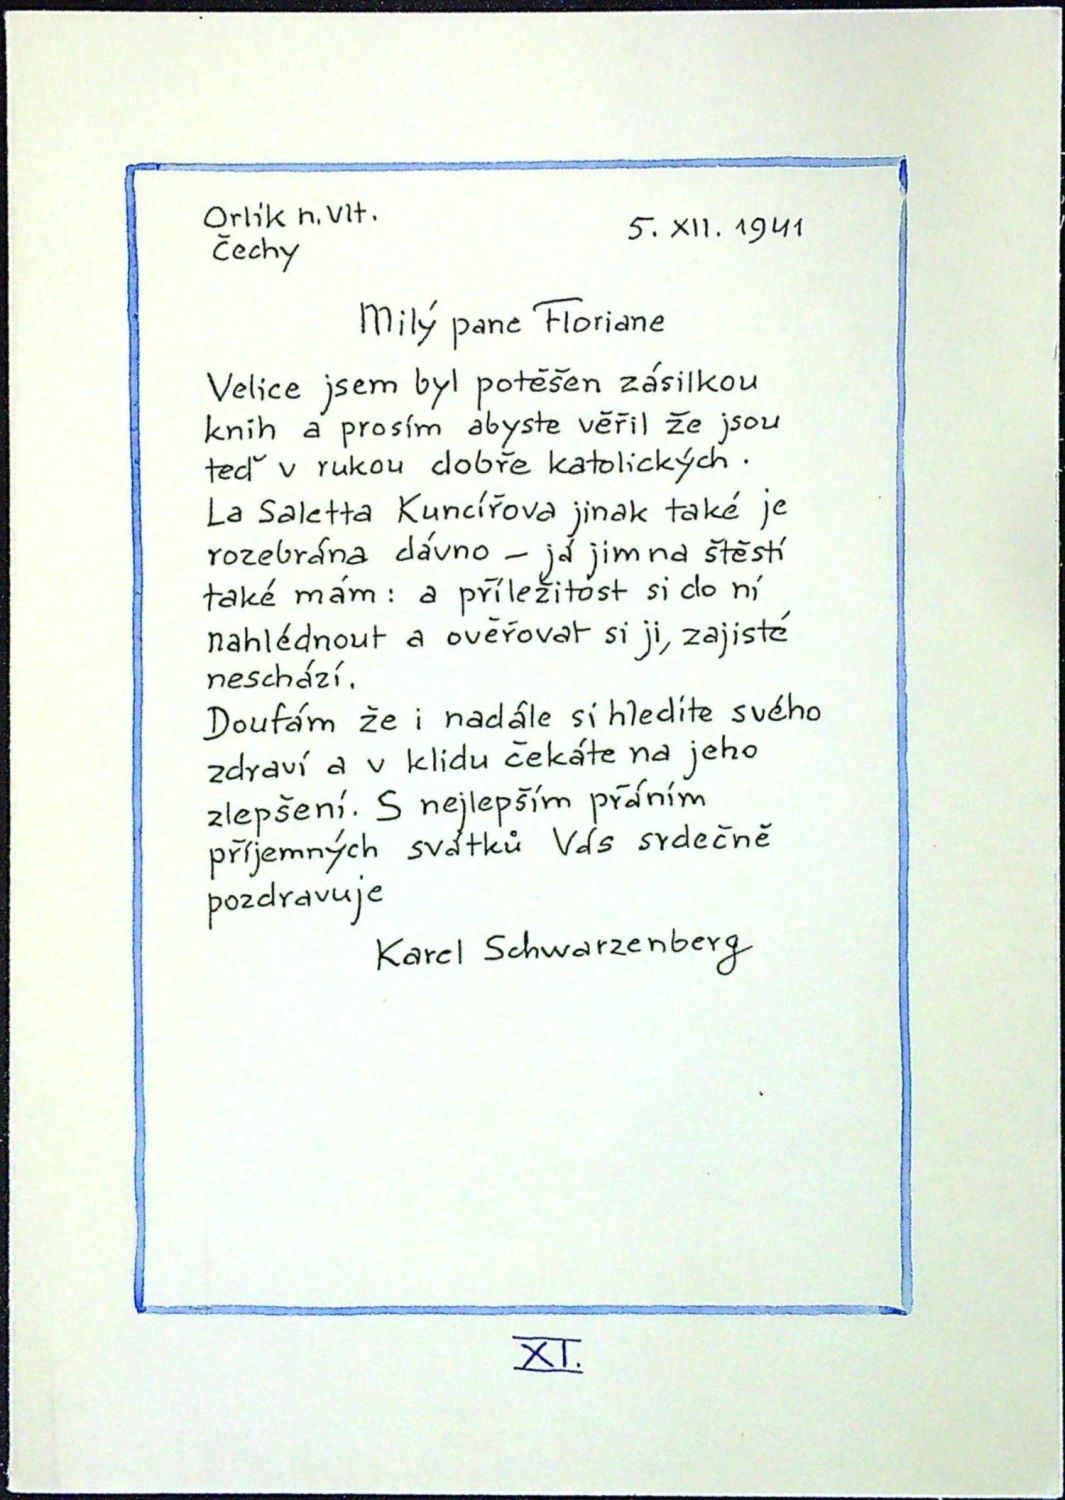 Orlík n. Vlt.
Čechy
5. XII. 1941
Milý pane Floriane
Velice jsem byl potěšen zásilkou
knih a prosím abyste věřil že jsou
teď v rukou dobře katolických.
La Saletta Kuncířova jinak také je
rozebrána dávno – já jim na štěstí
také mám: a příležitost si do ní
nahlédnout a ověřovat si ji, zajisté
neschází.
Doufám že i nadále si hledíte svého
zdraví a v klidu čekáte na jeho
zlepšení. S nejlepším přáním
příjemných svátků Vás srdečně
pozdravuje
Karel Schwarzenberg
XI.